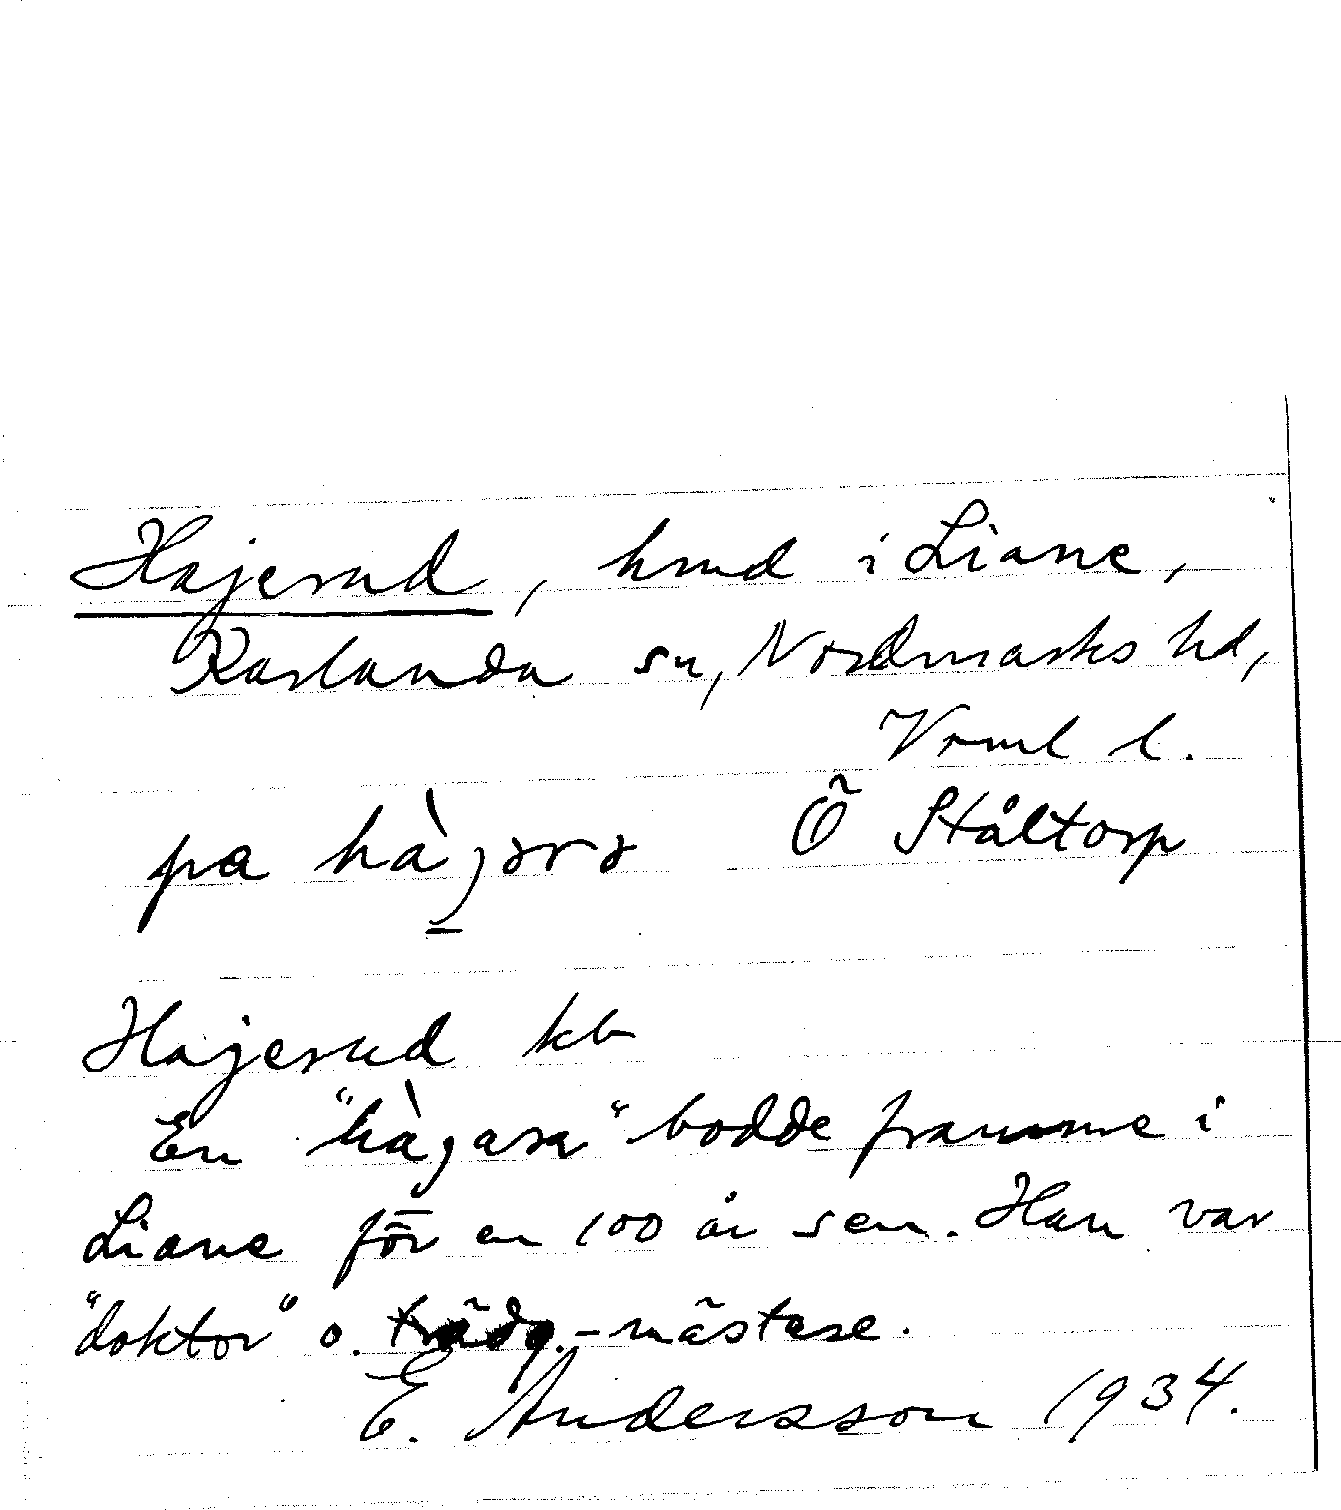 Hajerud, hmd i Liane,
Karlanda sn, Nordmarks hd,
Vrml l.
Ö Ståltorp
pa hàgərə
Hajerud kb
En "hàgara" bodde framme i
Liane för en 100 år sen. Han var
"doktor" o. trädg.-mästare.
E. Andersson 1934.